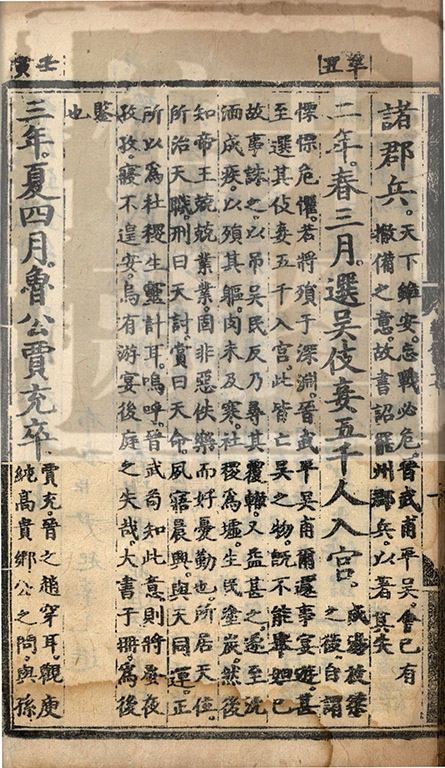 辛丑
諸郡兵。天下雖安。忘戰必危。晉武甫平吳。會已有
撤備之意。故書詔罷州郡兵。以著其失
二年。春三月。選吳伎妾五千人入宮。成湯放桀
之後。自謂
慄慄危懼。若將殞于深淵。晉武平吳甫爾。遽事宴遊。甚
至選其伎妾五千入宮。此皆亡吳之物。既不能舉妲己
故事誅之。以吊吳民。反乃尋其覆轍。又益甚之。遂至沈
湎成疾。以殞其軀。肉未及寒。社稷為墟。生民塗炭。然後
知帝王兢兢業業。固非惡佚樂而好憂勤也。所居天位。
所治天職。刑曰天討。賞曰天命。夙寤晨興。與天同運。正
所以為社稷生靈計耳。嗚呼。晉武苟知此意。則將昼夜
孜孜。寢不遑安。烏有游宴後庭之失哉。大書于冊。為後
鑒
也
壬寅
三年。夏四月。魯公賈充卒。賈充。晉之趙穿耳。觀庾
純高貴鄉公之問。與孫